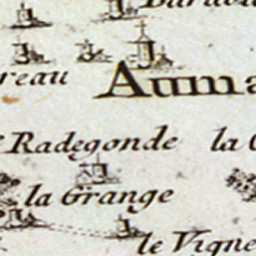 reau
Auma
Radegonde la
la Grange
le Vigne